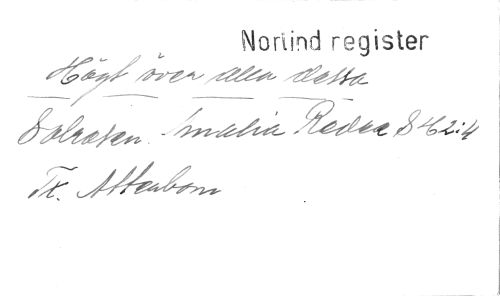 Norlind register
Högt över alla dessa
Solrosen. Amalia Redec S 42:4
Tx. Atterbom